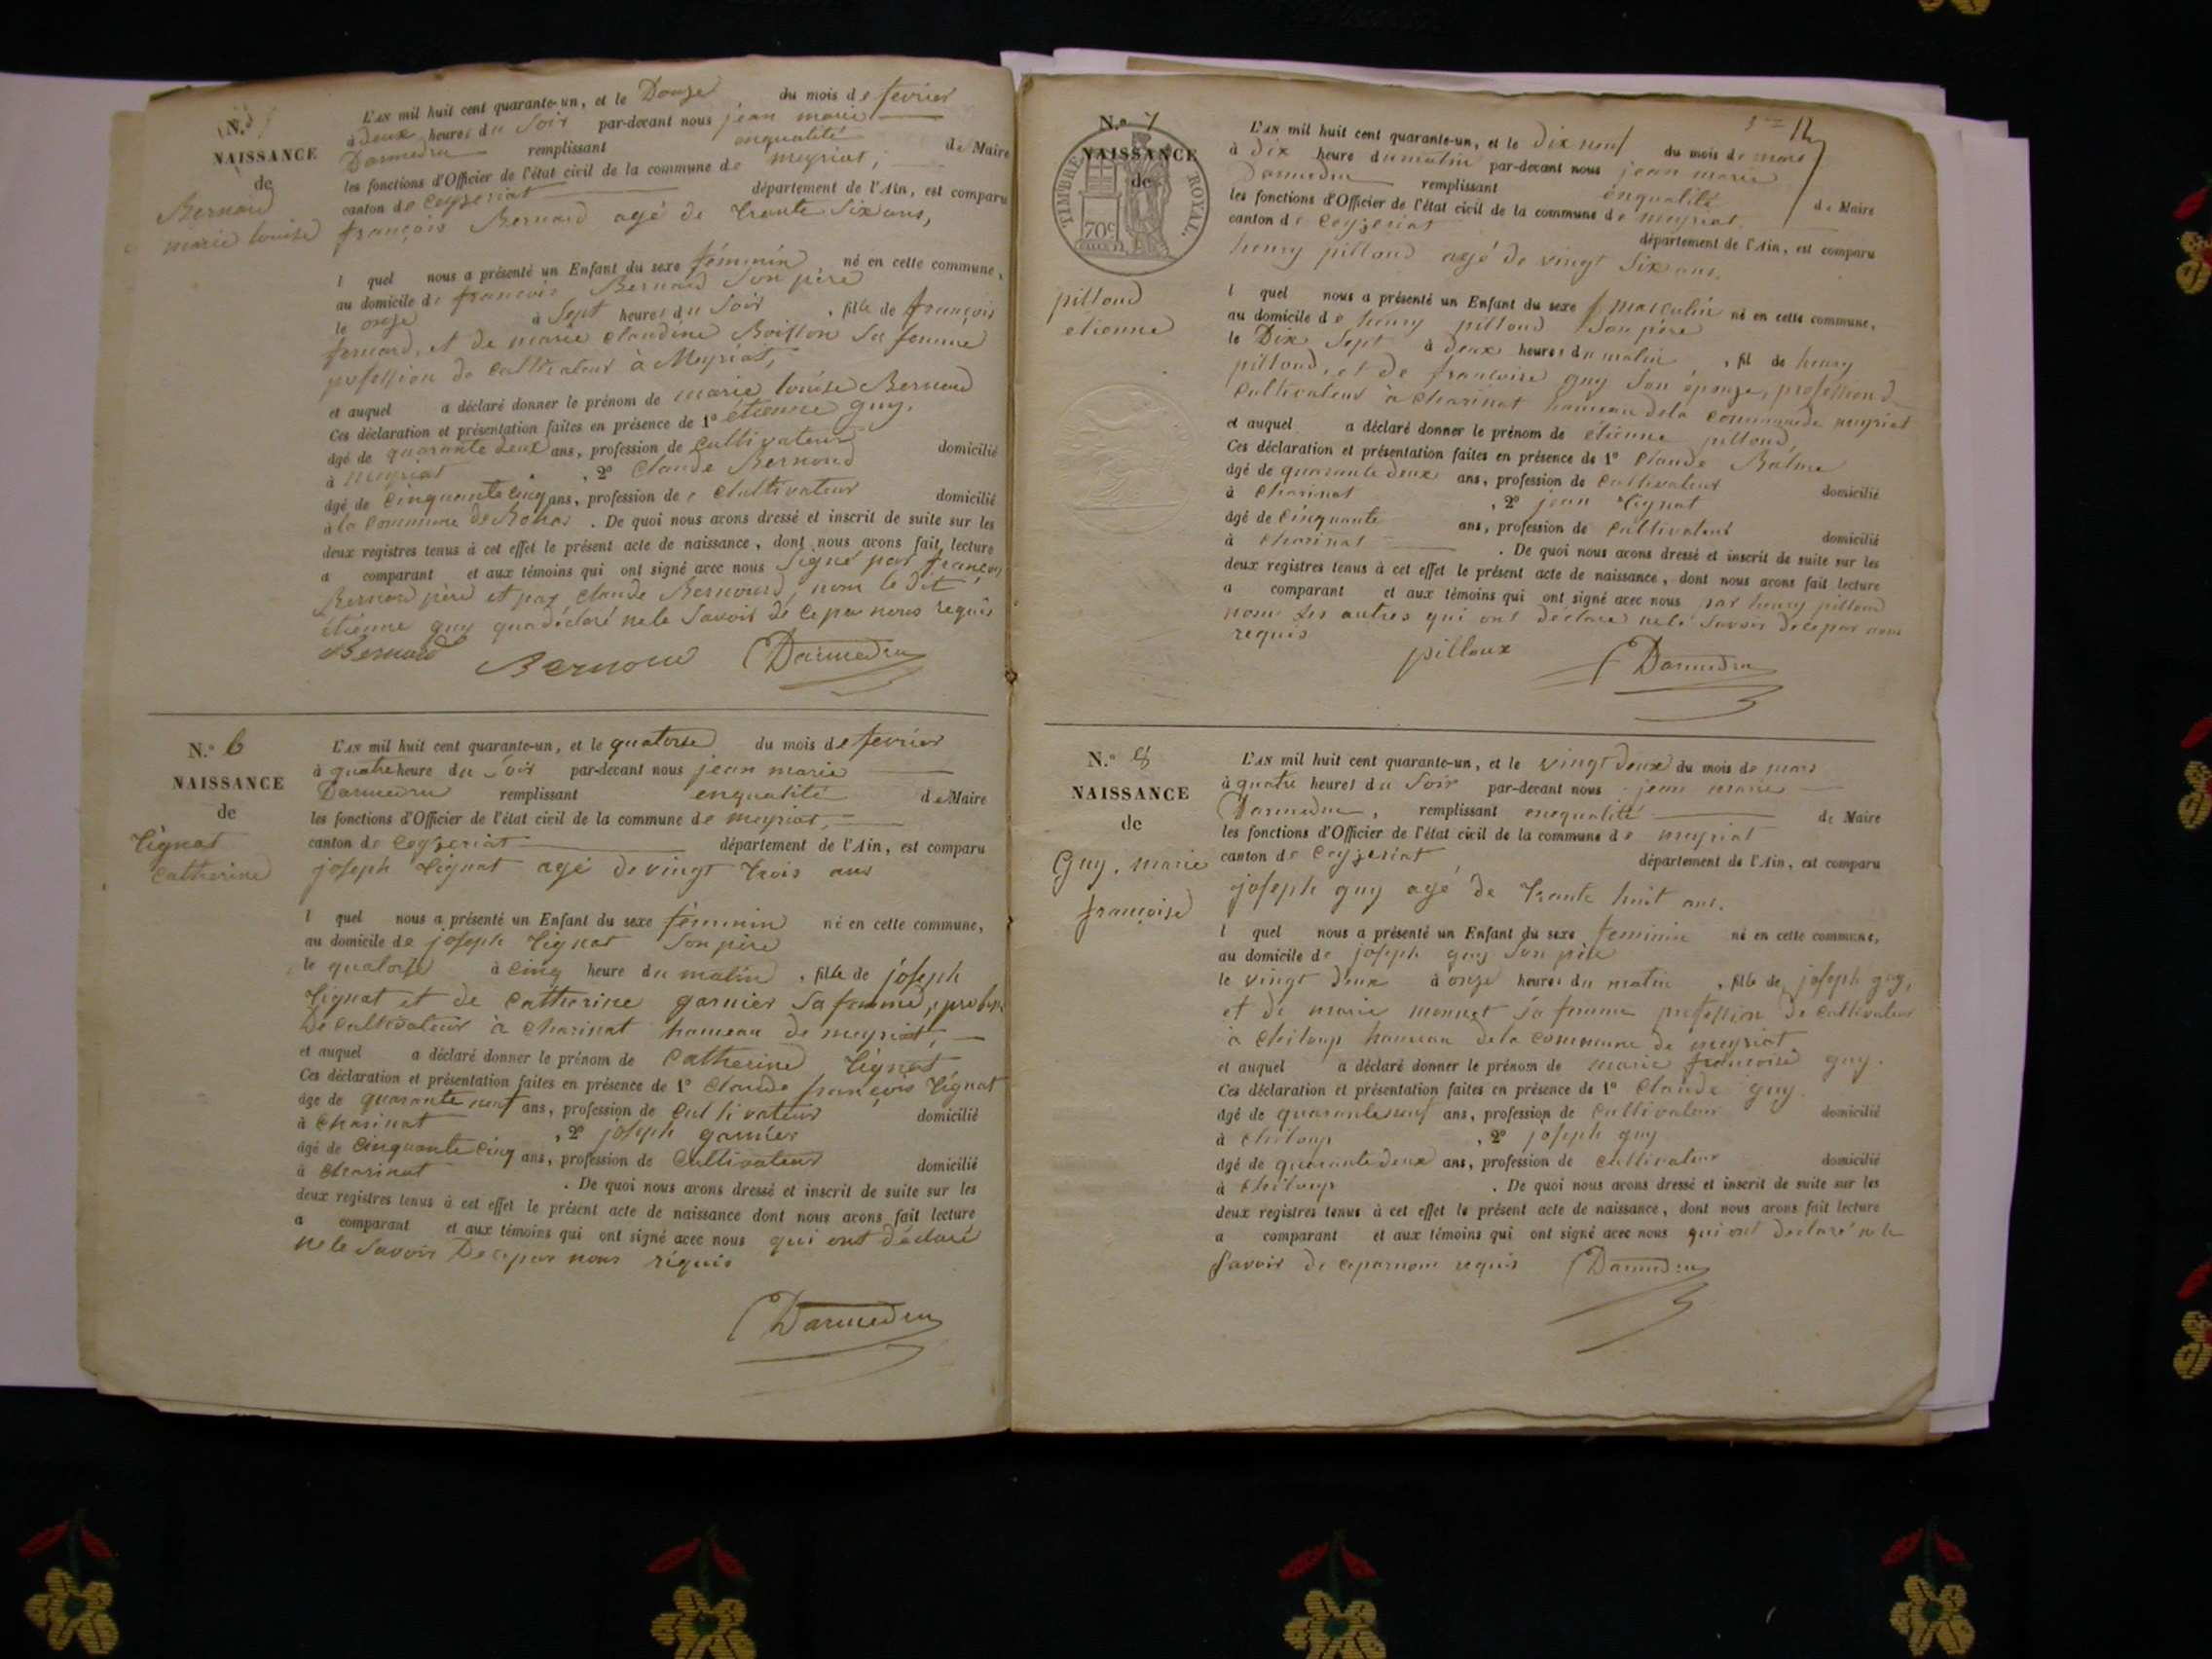 N.º 5
NAISSANCE
de
Bernard
marie louise
L'AN mil huit cent quarante-un, et le Douze du mois de fevrier
à deux heures du Soir par-devant nous jean marie
Darmedru remplissant enqualité de Maire
les fonctions d'Officier de l'état civil de la commune de meyriat,
canton de Ceyzeriat département de l'Ain, est comparu
françois Bernard agé de trante Six ans,
l quel nous a présenté un Enfant du sexe féminin né en cette commune,
au domicile de francois Bernard Son père
le onze à Sept heures du Soir , fille de françois
Bernard, et de marie claudine Boisson Sa femme
profession de cultivateur à Meyriat,
et auquel a déclaré donner le prénom de marie louise Bernard
Ces déclaration et présentation faites en présence de 1º étienne guy.
âgé de quarante deux ans, profession de cultivateur domicilié
à meyriat , 2º Claude Bernard
âgé de cinquante cinq ans, profession de cultivateur domicilié
à la Commune de . De quoi nous avons dressé et inscrit de suite sur les
deux registres tenus à cet effet le présent acte de naissance, dont nous avons fait lecture
a comparant et aux témoins qui ont signé avec nous Signé par françois
Bernard père et par claude Bernard, non le dit
étienne guy qua déclaré ne le Savoir de ce par nous requis
Bernard Bernard Darmedru
N.º 6
NAISSANCE
de
tignat
Catherine
L'AN mil huit cent quarante-un, et le quatorse du mois de fevrier
à quatre heure du Soir par-devant nous jean marie
Darmedru remplissant enqualité de Maire
les fonctions d'Officier de l'état civil de la commune de meyriat,
canton de Ceyzeriat département de l'Ain, est comparu
joseph tignat agé de vingt trois ans
l quel nous a présenté un Enfant du sexe féminin né en cette commune,
au domicile de joseph tignat Son père
le quatorse à cinq heure du matin , fille de joseph
tignat et de catherine garnier Sa femme,
De cultivateur à charinat hameau de meyriat,
et auquel a déclaré donner le prénom de Catherine tignat
Ces déclaration et présentation faites en présence de 1º claude françois tignat
âge de quarante neuf ans, profession de Cultivateur domicilié
à charinat , 2º joseph garnier
âgé de cinquante cinq ans, profession de Cultivateur domicilié
à charinat . De quoi nous avons dressé et inscrit de suite sur les
deux registres tenus à cet effet le présent acte de naissance dont nous avons fait lecture
a comparant et aux témoins qui ont signé avec nous qui ont déclaré
ne le Savoir De ce par nous réquis
Darmedru
N.º 7
NAISSANCE
de
TIMBRE ROYAL.
70c
pilloud
etienne
12
L'AN mil huit cent quarante-un, et le dix neuf du mois de mars
à Dix heure du matin par-devant nous jean marie
Darmedru remplissant enqualité de Maire
les fonctions d'Officier de l'état civil de la commune de meyriat
canton de Ceyzeriat département de l'Ain, est comparu
henry pilloud agé de vingt Six ans,
l quel nous a présenté un Enfant du sexe masculin né en cette commune,
au domicile de henry pilloud Son père
le Dix Sept à Deux heures du matin , fil de henry
pilloud, et de francoise guy Son épouse, profession de
Cultivateur à charinat hameau dela commune de meyriat
et auquel a déclaré donner le prénom de étienne pilloud,
Ces déclaration et présentation faites en présence de 1º Claude Balme
âgé de quarante deux ans, profession de Cultivateur domicilié
à charinat , 2º jean tignat
âgé de cinquante ans, profession de Cultivateur domicilié
à charinat . De quoi nous avons dressé et inscrit de suite sur les
deux registres tenus à cet effet le présent acte de naissance, dont nous avons fait lecture
a comparant et aux témoins qui ont signé avec nous par henry pilloud
non les autres qui ont déclaré ne le Savoir de ce par nous
requis
pilloux Darmedru
N.º 8
NAISSANCE
de
Guy, marie
françoise
L'AN mil huit cent quarante-un, et le vingt deux du mois de mars
à quatre heures du Soir par-devant nous jean marie
Darmedru, remplissant enequalité de Maire
les fonctions d'Officier de l'état civil de la commune de meyriat
canton de Ceyzeriat département de l'Ain, est comparu
joseph guy agé de trante huit ans.
l quel nous a présenté un Enfant du sexe feminin né en cette commune,
au domicile de joseph guy Son père
le vingt deux à onze heures du matin , fille de joseph guy,
et de marie monnet Sa femme profession de cultivateur
à chiloup hameau dela commune de meyriat
et auquel a déclaré donner le prénom de marie françoise guy.
Ces déclaration et présentation faites en présence de 1º Claude guy
âgé de quarante neuf ans, profession de Cultivateur domicilié
à chiloup , 2º joseph guy
âgé de quarante deux ans, profession de cultivateur domicilié
à chiloup . De quoi nous avons dressé et inscrit de suite sur les
deux registres tenus à cet effet le présent acte de naissance, dont nous avons fait lecture
a comparant et aux témoins qui ont signé avec nous qui ont déclaré ne le
Savoir de ce par nous requis Darmedru